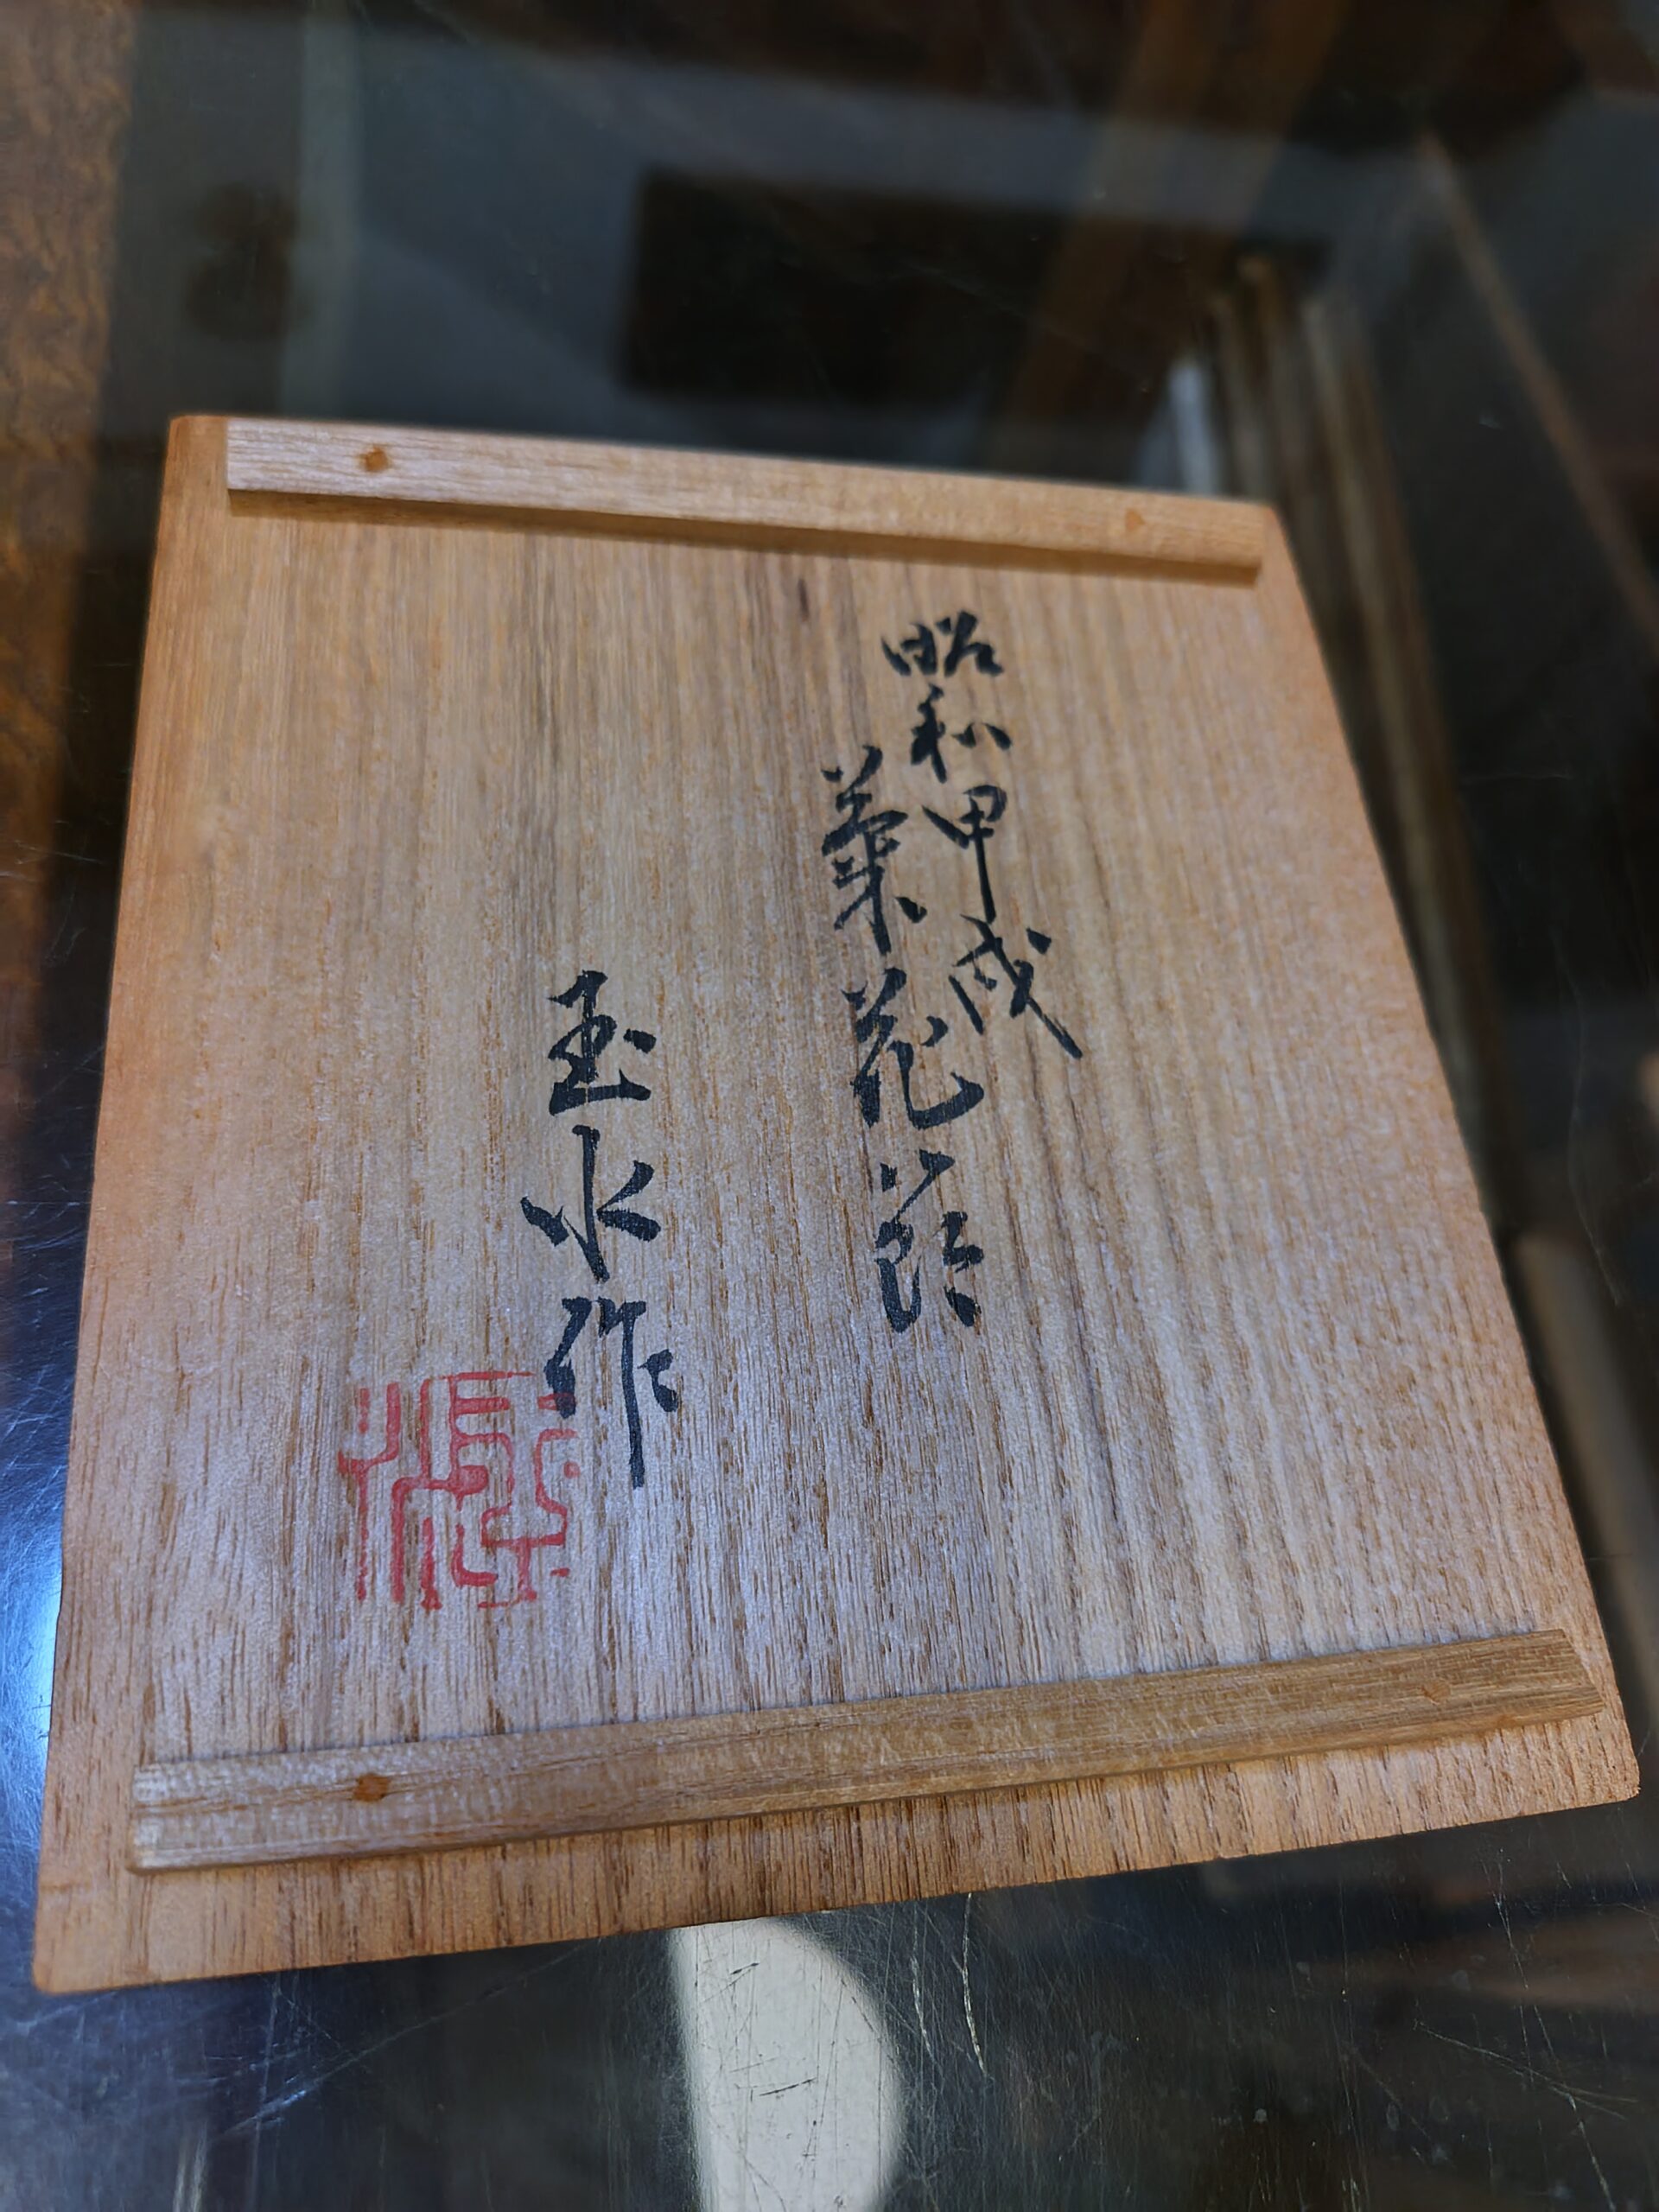 昭和甲戌
菜花節
玉水作